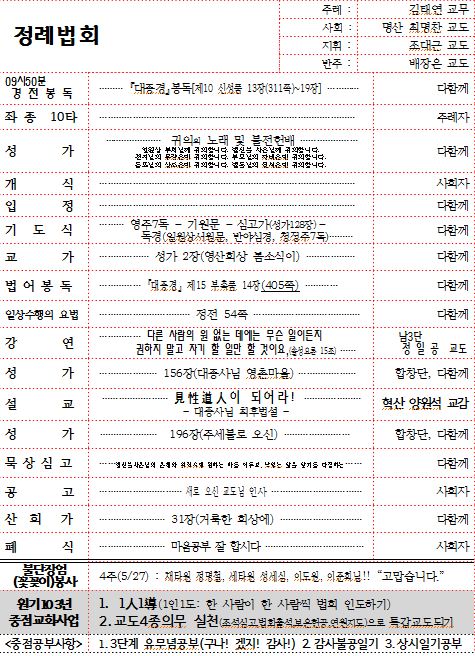 정례법회
주례 : 김태연 교무
사회 : 명산 최명찬 교도
지휘 : 조대근 교도
반주 : 배장은 교도
09시50분
경 전 봉 독 『대종경』봉독[제10 신성품 13장(311쪽)~19장] 다함께
좌 종 10타 주례자
성 가 귀의의 노래 및 불전헌배 다함께
일원상 부처님께 귀의합니다. 법신불 사은님께 귀의합니다.
개 식 사회자
입 정 다함께
기 도 식 영주7독 - 기원문 - 심고가(성가128장) - 다함께
독경(일원상서원문, 반야심경, 청정주7독)
교 가 성가 2장(영산회상 봄소식이) 다함께
법 어 봉 독 『대종경』 제15 부촉품 14장(405쪽) 다함께
일상수행의 요법 정전 54쪽 다함께
강 연 다른 사람의 원 없는 데에는 무슨 일이든지 남3단
권하지 말고 자기 할 일만 할 것이요,(솔성요론 15조) 정 일 공 교도
성 가 156장(대종사님 영촌마을) 합창단, 다함께
설 교 見性道人이 되어라! 현산 양원석 교감
- 대종사님 최후법설 -
성 가 196장(주세불로 오신) 합창단, 다함께
묵 상 심 고 다함께
공 고 새로 오신 교도님 인사 사회자
산 회 가 31장(거룩한 회상에) 다함께
폐 식 마음공부 잘 합시다 사회자
불단장엄
(꽃꽂이)봉사 4주(5/27) : 채타원 정명침, 세타원 성세심, 이도원, 이준화님!! “고맙습니다.”
원기103년
중점교화사업
1. 1人1導(1인1도: 한 사람이 한 사람씩 법회 인도하기)
2. 교도4종의무 실천(조석심고법회출석보은헌공,연원지도)으로 특갑교도되기
<중점공부사항> 1.3단계 유무념공부(구나! 겠지! 감사!) 2.감사불공일기 3.상시일기공부